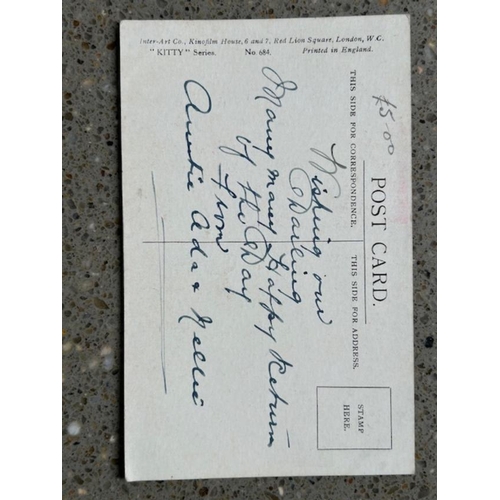 Inter-Art Co., Kinofilm House, 6 and 7, Red Lion Square, London, W.C.
"KITTY" Series. No. 684. Printed in England.
£5-00
POST CARD.
THIS SIDE FOR CORRESPONDENCE.
THIS SIDE FOR ADDRESS.
STAMP
HERE.
Wishing our
Darling
Many Many Happy Return
of the Day
From
Auntie Ada & Nellie